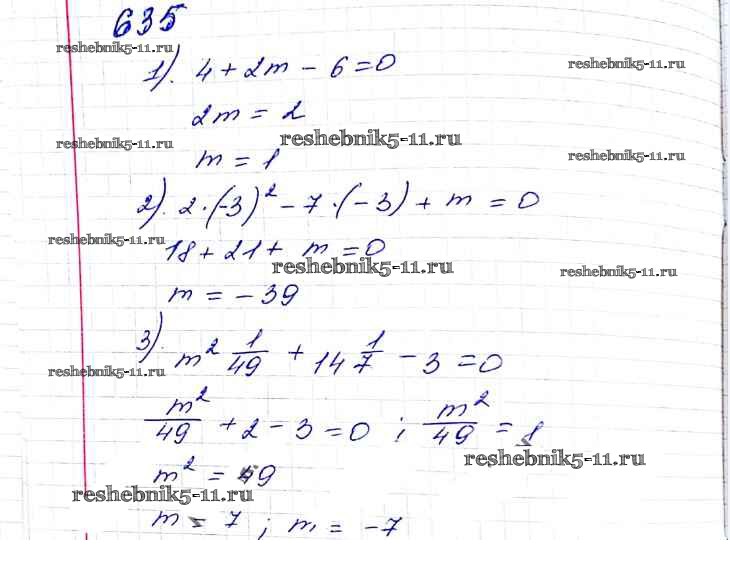 635
reshebnik5-11.ru
1). 4 + 2m - 6 = 0
reshebnik5-11.ru
2m = 2
reshebnik5-11.ru
reshebnik5-11.ru
m = 1
reshebnik5-11.ru
2). 2·(-3)² - 7·(-3) + m = 0
reshebnik5-11.ru
18 + 21 + m = 0
reshebnik5-11.ru
reshebnik5-11.ru
m = -39
3). m² 1/49 + 14 1/7 - 3 = 0
reshebnik5-11.ru
m²/49 + 2 - 3 = 0 ; m²/49 = 1
reshebnik5-11.ru
m² = 49
reshebnik5-11.ru
m = 7 ; m = -7